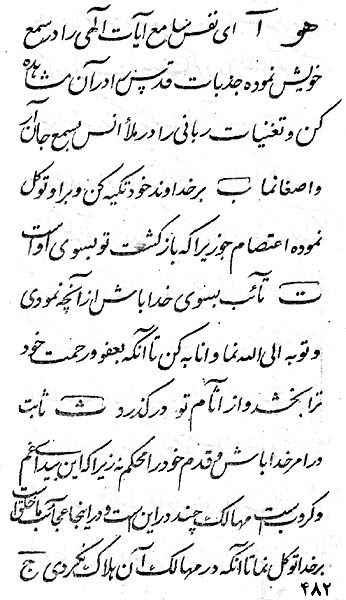 هو آ ای نفس سامع آیات آلهی را در سمع
خویش نموده جذبات قدتپس را در آن مشاهده
کن و تغنیات ربانی را در ملأ انس بسمع جان آر
و اصغا نما ب بر خداوند خود تکیه کن و بر او توکل
نموده اعتصام جو زیرا که بازگشت تو بسوی او است
ت تائب بسوی خدا باش از آنچه نمودی
و توبه الی الله نما و انابه کن تا آنکه بعفو و رحمت خود
ترا بخشد و از اثآم تو درگذرد ث ثابت
در امر خدا باش و قدم خود را محکم نه زیرا که این بیدای غم
و کروبست مهالک چند در این است و در اینجا عجائب مخلوقات
بر خدا توکل نما تا آنکه در مهالک آن هلاک نگردی ج
۴۸۲